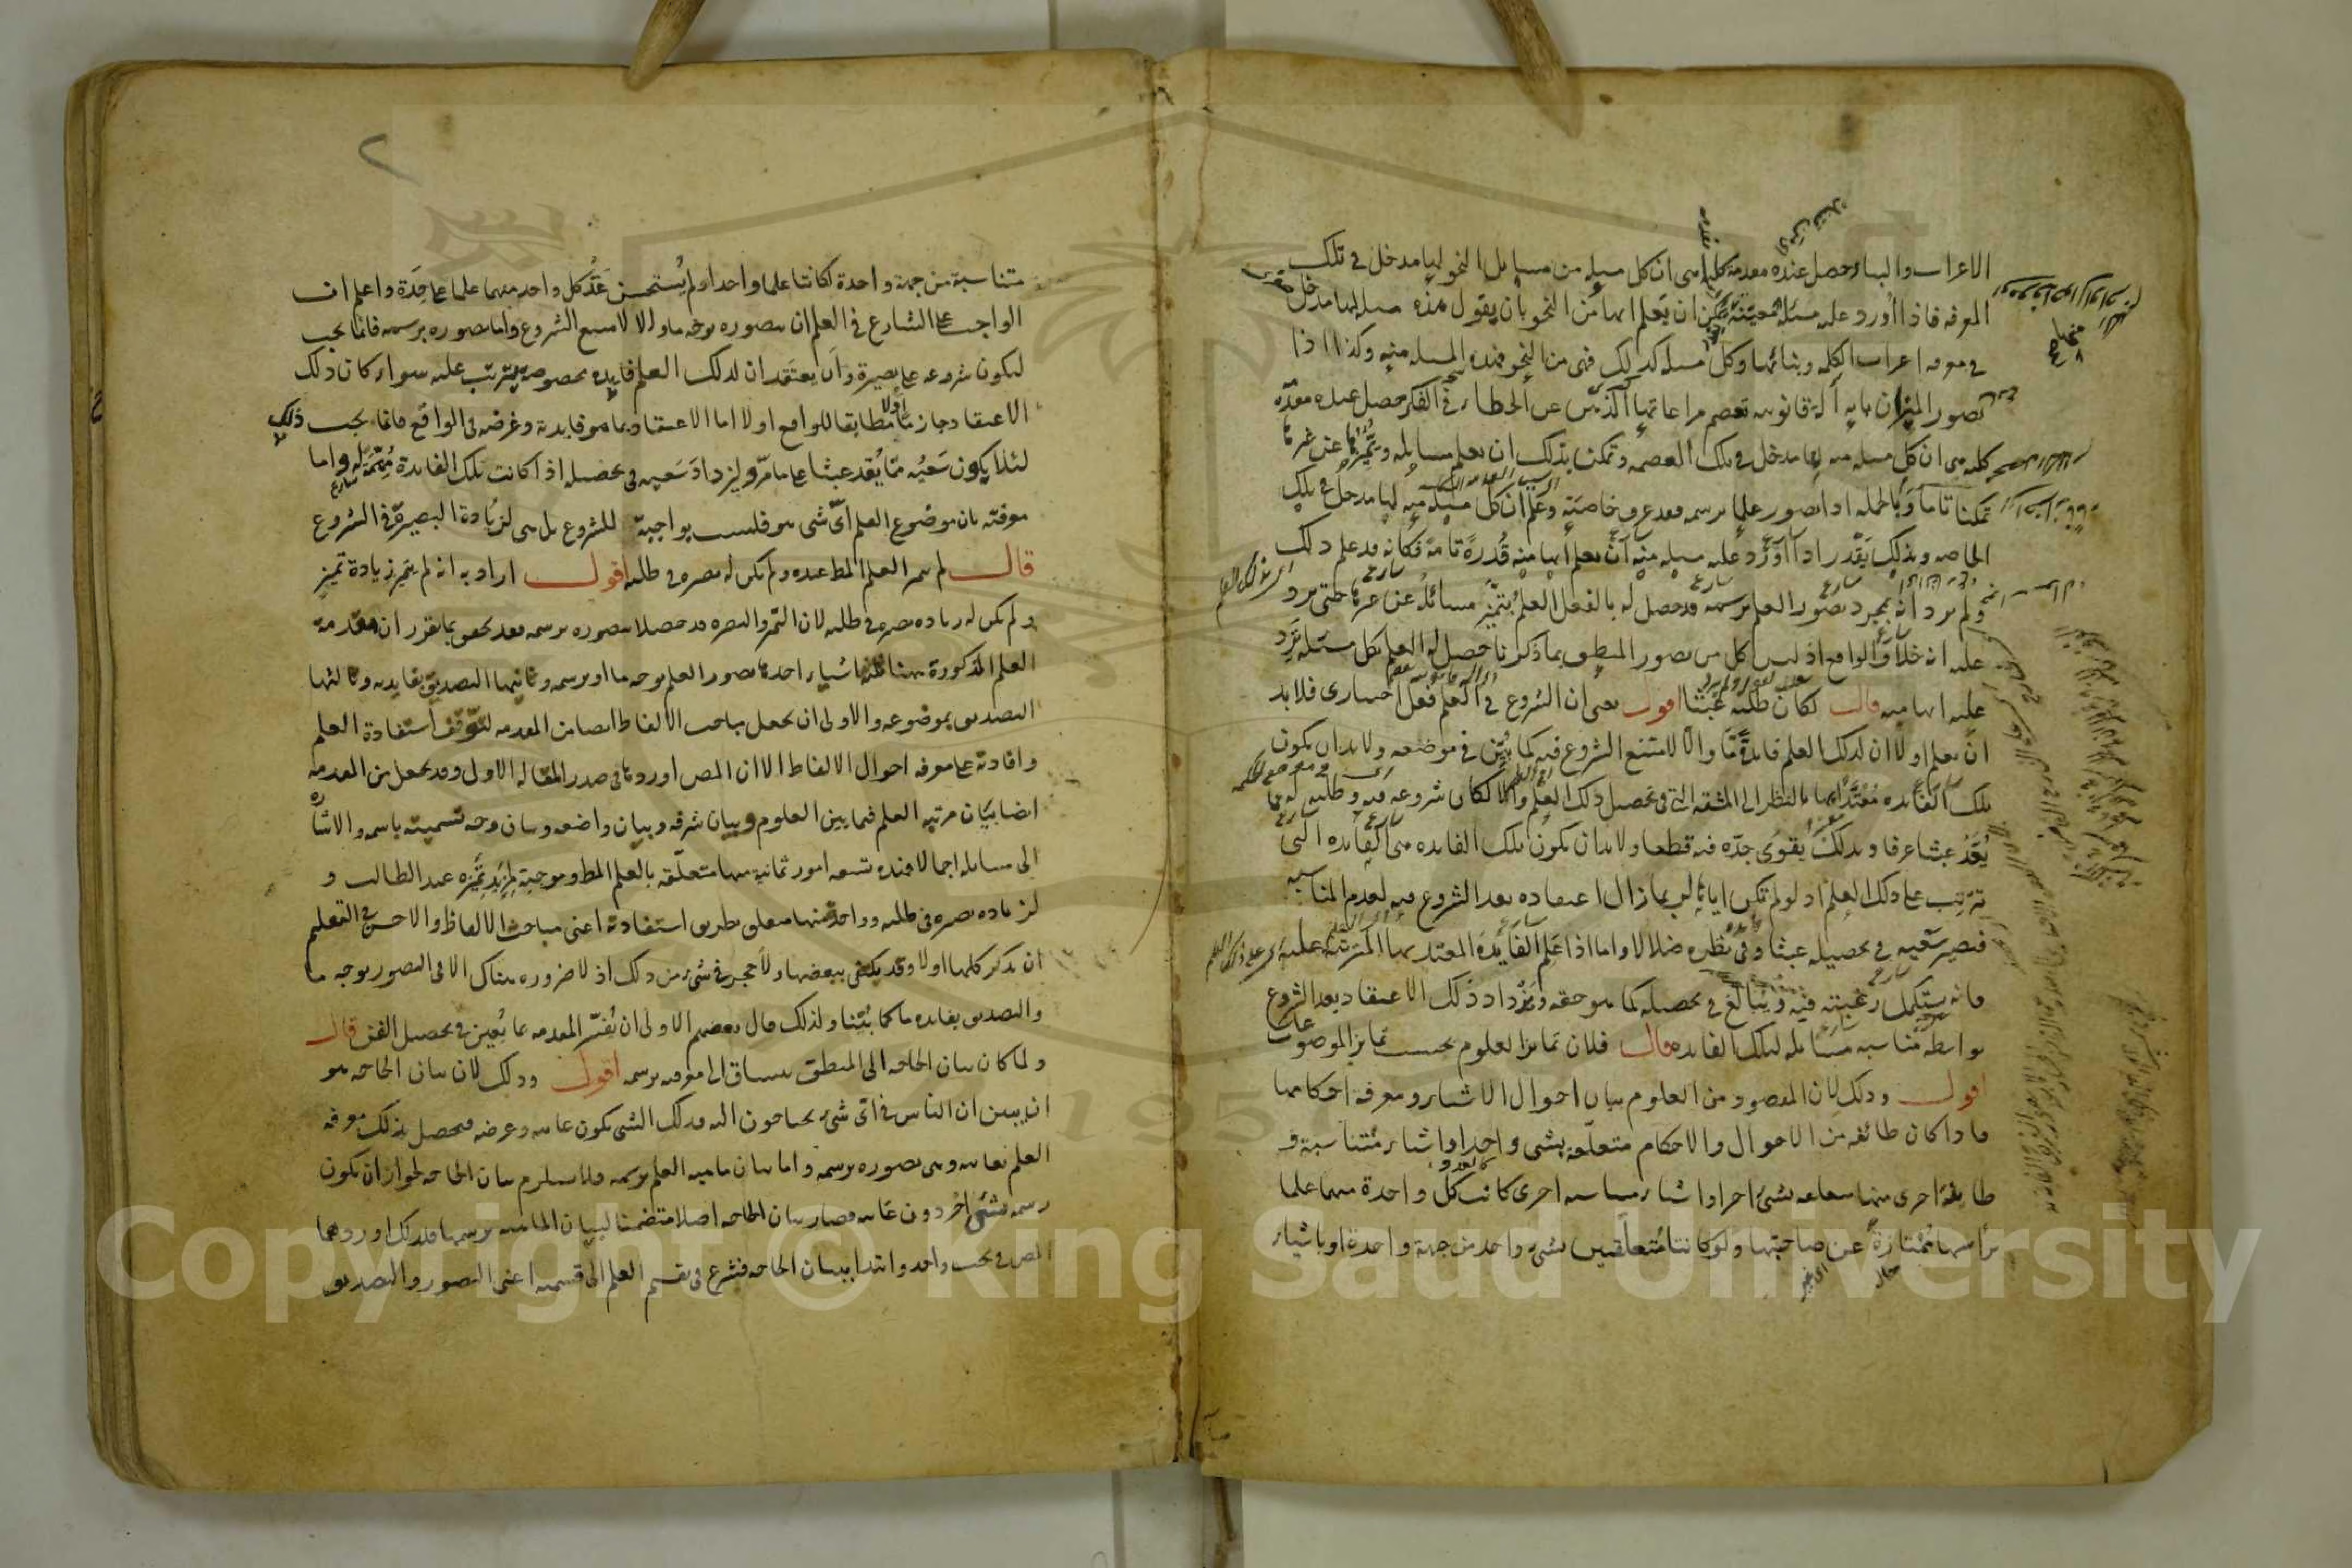 الاعراب والبناء حصل عنده مقدمة كلية هى ان كل مسئلة من مسايل النحو لها مدخل فى تلك
المعرفة فاذا أورد عليه مسئلة معينة تمكن ان يعلم انها من النحو بان يقول هذه مسئلة لها مدخل
فى معرفة اعراب الكلمة وبنائها وكل مسئلة كذلك فهى من النحو فهذه المسئلة منه وكذا اذا
تصور الميزان بانه آلة قانونية تعصم مراعاتها الذهن عن الخطاء فى الفكر حصل عنده مقدمة
كلية هى ان كل مسئلة منه لها مدخل فى تلك العصمة وتمكن بذلك ان يعلم مسائله ويميزها عن غيرها
تمكنا تاما وبالجملة اذا تصور علما برسمه فقد عرف خاصته وعلم ان كل مسئلة منه لها مدخل فى تلك
الخاصة وبذلك يقدر اذا أورد عليه مسئلة منه ان يعلم انها منه قدرة تامة فكانه قد علم ذلك
ولم يرد انه بمجرد تصور العلم برسمه قد حصل له بالفعل العلم بتميز مسائله عن غيرها حتى يرد
عليه انه خلاف الواقع اذ ليس كل من تصور المنطق بما ذكرنا حصل له العلم بكل مسئلة ترد
عليه انها منه قال لكان طلبه عبثا اقول يعنى ان الشروع فى العلم فعل اختيارى فلابد
ان يعلم اولا ان لذلك العلم فايدة ما والا لامتنع الشروع فيه كما بين فى موضعه ولابد ان يكون
تلك الفايدة معتدا بها بالنظر الى المشقة التى فى تحصيل ذلك العلم والا لكان شروعه فيه وطلبه له مما
يعد عبثا عرفا وبذلك يقوى جده فيه قطعا ولابد ان يكون تلك الفايدة هى الفايدة التى
تترتب على ذلك العلم اذ لو لم تكن اياها لربما زال اعتقاده بعد الشروع فيه لعدم المناسبة
فيصير سعيه فى تحصيله عبثا وفى نظره ضلالا واما اذا علم الفايدة المعتد بها المترتبة عليه
فانه يستكمل رغبته فيه ويبالغ فى تحصيله كما هو حقه ويزداد ذلك الاعتقاد بعد الشروع
بواسطة مناسبة مسائله لتلك الفايدة قال فلان تمايز العلوم بحسب تمايز الموضوعات
اقول وذلك لان المقصود من العلوم بيان احوال الاشياء ومعرفة احكامها
فاذا كان طائفة من الاحوال والاحكام متعلقة بشى واحد او اشياء متناسبة و
طايفة اخرى منها متعلقة بشئ اخر او اشياء متناسبة اخرى كانت كل واحدة منهما علما
برأسها ممتازة عن صاحبتها ولو كانتا متعلقتين بشئ واحد من جهة واحدة او باشياء
٢
متناسبة من جهة واحدة لكانتا علما واحدا ولم يستحسن عد كل واحد منهما علما على حدة واعلم ان
الواجب على الشارع فى العلم ان يتصوره بوجه ما والا لامتنع الشروع واما تصوره برسمه فانما يجب
ليكون شروعه على بصيرة وان يعتقد ان لذلك العلم فايدة مخصوصة يترتب عليه سواء كان ذلك
الاعتقاد جازما مطابقا للواقع اولا اما الاعتقاد بما هو فايدته وغرضه فى الواقع فانما يجب ذلك
لئلا يكون سعيه مما يعد عبثا على ما مر وليزداد سعيه فى تحصيله اذا كانت تلك الفايدة مهمة له واما
معرفته بان موضوع العلم اى شى هو فليست بواجبة للشروع بل هى لزيادة البصيرة فى الشروع
قال لم يتميز العلم المط عنده ولم يكن له بصيرة فى طلبه اقول اراد به انه لم يتميز زيادة تميز
ولم يكن له زيادة بصيرة فى طلبه لان التميز والبصيرة قد حصلا بتصوره برسمه فقد تحقق بما تقرر ان مقدمة
العلم المذكورة ههنا ثلثة اشياء احدها تصور العلم بوجه ما او برسمه وثانيها التصديق بفايدته وثالثها
التصديق بموضوعه والاولى ان يجعل مباحث الالفاظ ايضا من المقدمة لتوقف استفادة العلم
وافادته على معرفة احوال الالفاظ الا ان المص اوردها فى صدر المقالة الاولى وقد يجعل من المقدمة
ايضا بيان مرتبة العلم فيما بين العلوم وبيان شرفه وبيان واضعه وبيان وجه تسميته باسمه والاشارة
الى مسائله اجمالا فهذه تسعة امور ثمانية منها متعلقة بالعلم المط وموجبة لمزيد تميزه عند الطالب و
لزيادة بصيرة فى طلبه وواحد منها متعلق بطريق استفادته اعنى مباحث الالفاظ والاحسن فى التعليم
ان يذكر كلها اولا وقد يكتفى ببعضها ولا حجر فى شئ من ذلك اذ لا ضرورة هناك الا فى التصور بوجه ما
والتصديق بفايدة ما كما بينا ولذلك قال بعضهم الاولى ان يفسر المقدمة بما يعين فى تحصيل الفن قال
ولما كان بيان الحاجة الى المنطق ينساق الى معرفته برسمه اقول وذلك لان بيان الحاجة هو
ان يبين ان الناس فى اى شئ يحتاجون اليه فذلك الشى يكون غايته وغرضه فيحصل بذلك معرفة
العلم بغايته وهى تصوره برسمه واما بيان ماهية العلم برسمه فلا يستلزم بيان الحاجة لجواز ان يكون
رسمه بشئ اخر دون غايته فصار بيان الحاجة اصلا متضمنا لبيان الماهية برسمها فلذلك اوردهما
المص فى بحث واحد وابتدا ببيان الحاجة فشرع فى تقسيم العلم الى قسميه اعنى التصور والتصديق
Copyright © King Saud University